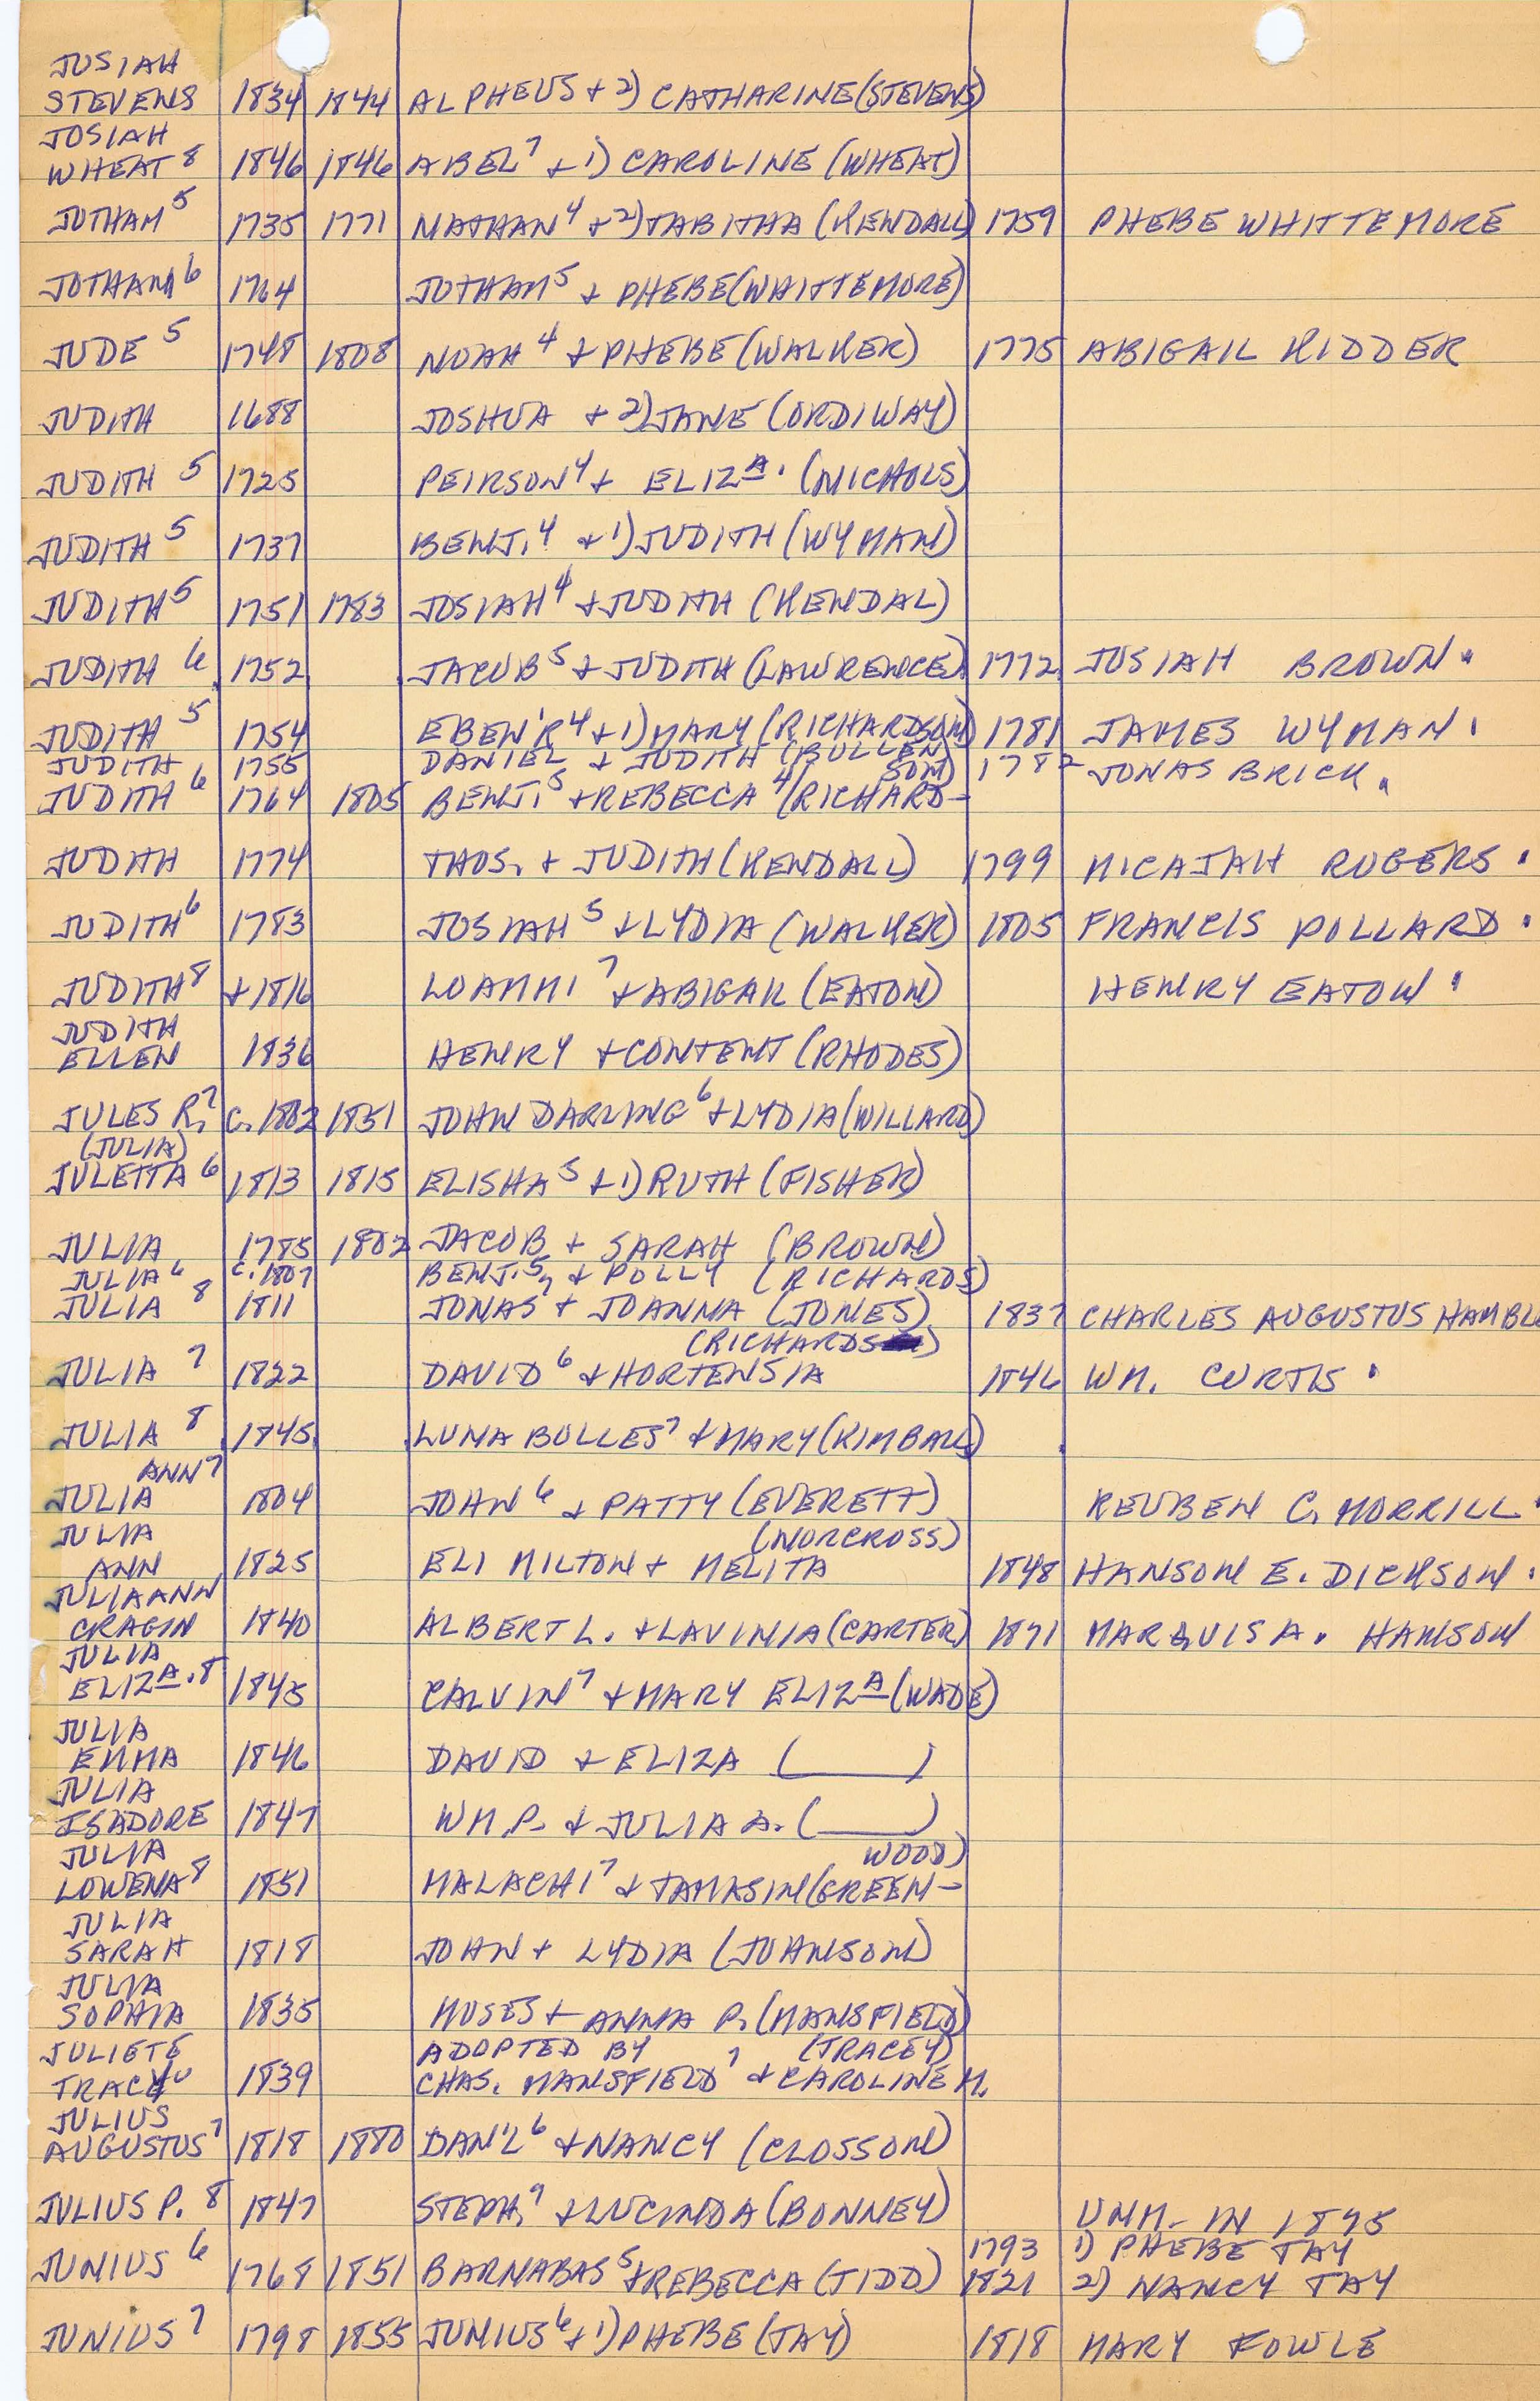 JOSIAH
STEVENS 1834 1844 ALPHEUS + 2) CATHARINE (STEVENS)
JOSIAH
WHEAT 8 1846 1846 ABEL 7 + 1) CAROLINE (WHEAT)
JOTHAM 5 1735 1771 NATHAN 4 + 2) TABITHA (KENDALL) 1759 PHEBE WHITTEMORE
JOTHAM 6 1764 JOTHAM 5 + PHEBE (WHITTEMORE)
JUDE 5 1748 1808 NOAH 4 + PHEBE (WALKER) 1775 ABIGAIL KIDDER
JUDITH 1688 JOSHUA + 2) JANE (ORDIWAY)
JUDITH 5 1725 PEIRSON 4 + ELIZA. (NICHOLS)
JUDITH 5 1737 BENJ. 4 + 1) JUDITH (WYMAN)
JUDITH 5 1751 1783 JOSIAH 4 + JUDITH (KENDAL)
JUDITH 6 1752 JACOB 5 + JUDITH (LAWRENCE) 1772 JOSIAH BROWN.
JUDITH 5 1754 EBEN'R 4 + 1) MARY (RICHARDSON) 1781 JAMES WYMAN.
JUDITH 1755 DANIEL + JUDITH (BULLEN) 1782 JONAS BRICK.
SON)
JUDITH 6 1764 1805 BENJ. 5 + REBECCA 4 (RICHARD-
JUDITH 1774 THOS. + JUDITH (KENDALL) 1799 MICAJAH ROGERS.
JUDITH 6 1783 JOSIAH 5 + LYDIA (WALKER) 1805 FRANCIS POLLARD.
JUDITH 8 + 1816 LOAMMI 7 + ABIGAIL (EATON) HENRY EATON.
JUDITH
ELLEN 1836 HENRY + CONTENT (RHODES)
JULES R. 7 C. 1802 1851 JOHN DARLING 6 + LYDIA (WILLARD)
(JULIA)
JULETTA 6 1813 1815 ELISHA 5 + 1) RUTH (FISHER)
JULIA 1785 1802 JACOB + SARAH (BROWN)
JULIA 6 C. 1807 BENJ. 5 + POLLY (RICHARDS)
JULIA 8 1811 JONAS 7 + JOANNA (JONES) 1837 CHARLES AUGUSTUS HAMBL
(RICHARDS)
JULIA 7 1822 DAVID 6 + HORTENSIA 1846 WM. CURTIS.
JULIA 8 1845 LUMA BOLLES 7 + MARY (KIMBALL)
ANN 7
JULIA 1804 JOHN 6 + PATTY (EVERETT) REUBEN C. MORRILL.
JULIA (NORCROSS)
ANN 1825 ELI MILTON + MELITA 1848 HANSON E. DICKSON.
JULIA ANN
CRAGIN 1840 ALBERT L. + LAVINIA (CARTER) 1871 MARQUIS A. HANSON
JULIA
ELIZA. 8 1845 CALVIN 7 + MARY ELIZA (WADE)
JULIA
EMMA 1846 DAVID + ELIZA (____)
JULIA
ISADORE 1847 WM. P. + JULIA A. (____)
JULIA WOOD)
LOWENA 8 1851 MALACHI 7 + TAMASIN (GREEN-
JULIA
SARAH 1818 JOHN + LYDIA (JOHNSON)
JULIA
SOPHIA 1835 MOSES + ANNA P. (MANSFIELD)
JULIETE ADOPTED BY (TRACEY)
TRACY 1839 CHAS. MANSFIELD 7 + CAROLINE M.
JULIUS
AUGUSTUS 7 1818 1880 DAN'L 6 + NANCY (CLOSSON)
JULIUS P. 8 1847 STEPH. 7 + LUCINDA (BONNEY) UNM. IN 1875
1793 1) PHEBE TAY
JUNIUS 6 1768 1851 BARNABAS 5 + REBECCA (TIDD) 1821 2) NANCY TAY
JUNIUS 7 1798 1855 JUNIUS 6 + 1) PHEBE (TAY) 1818 MARY FOWLE